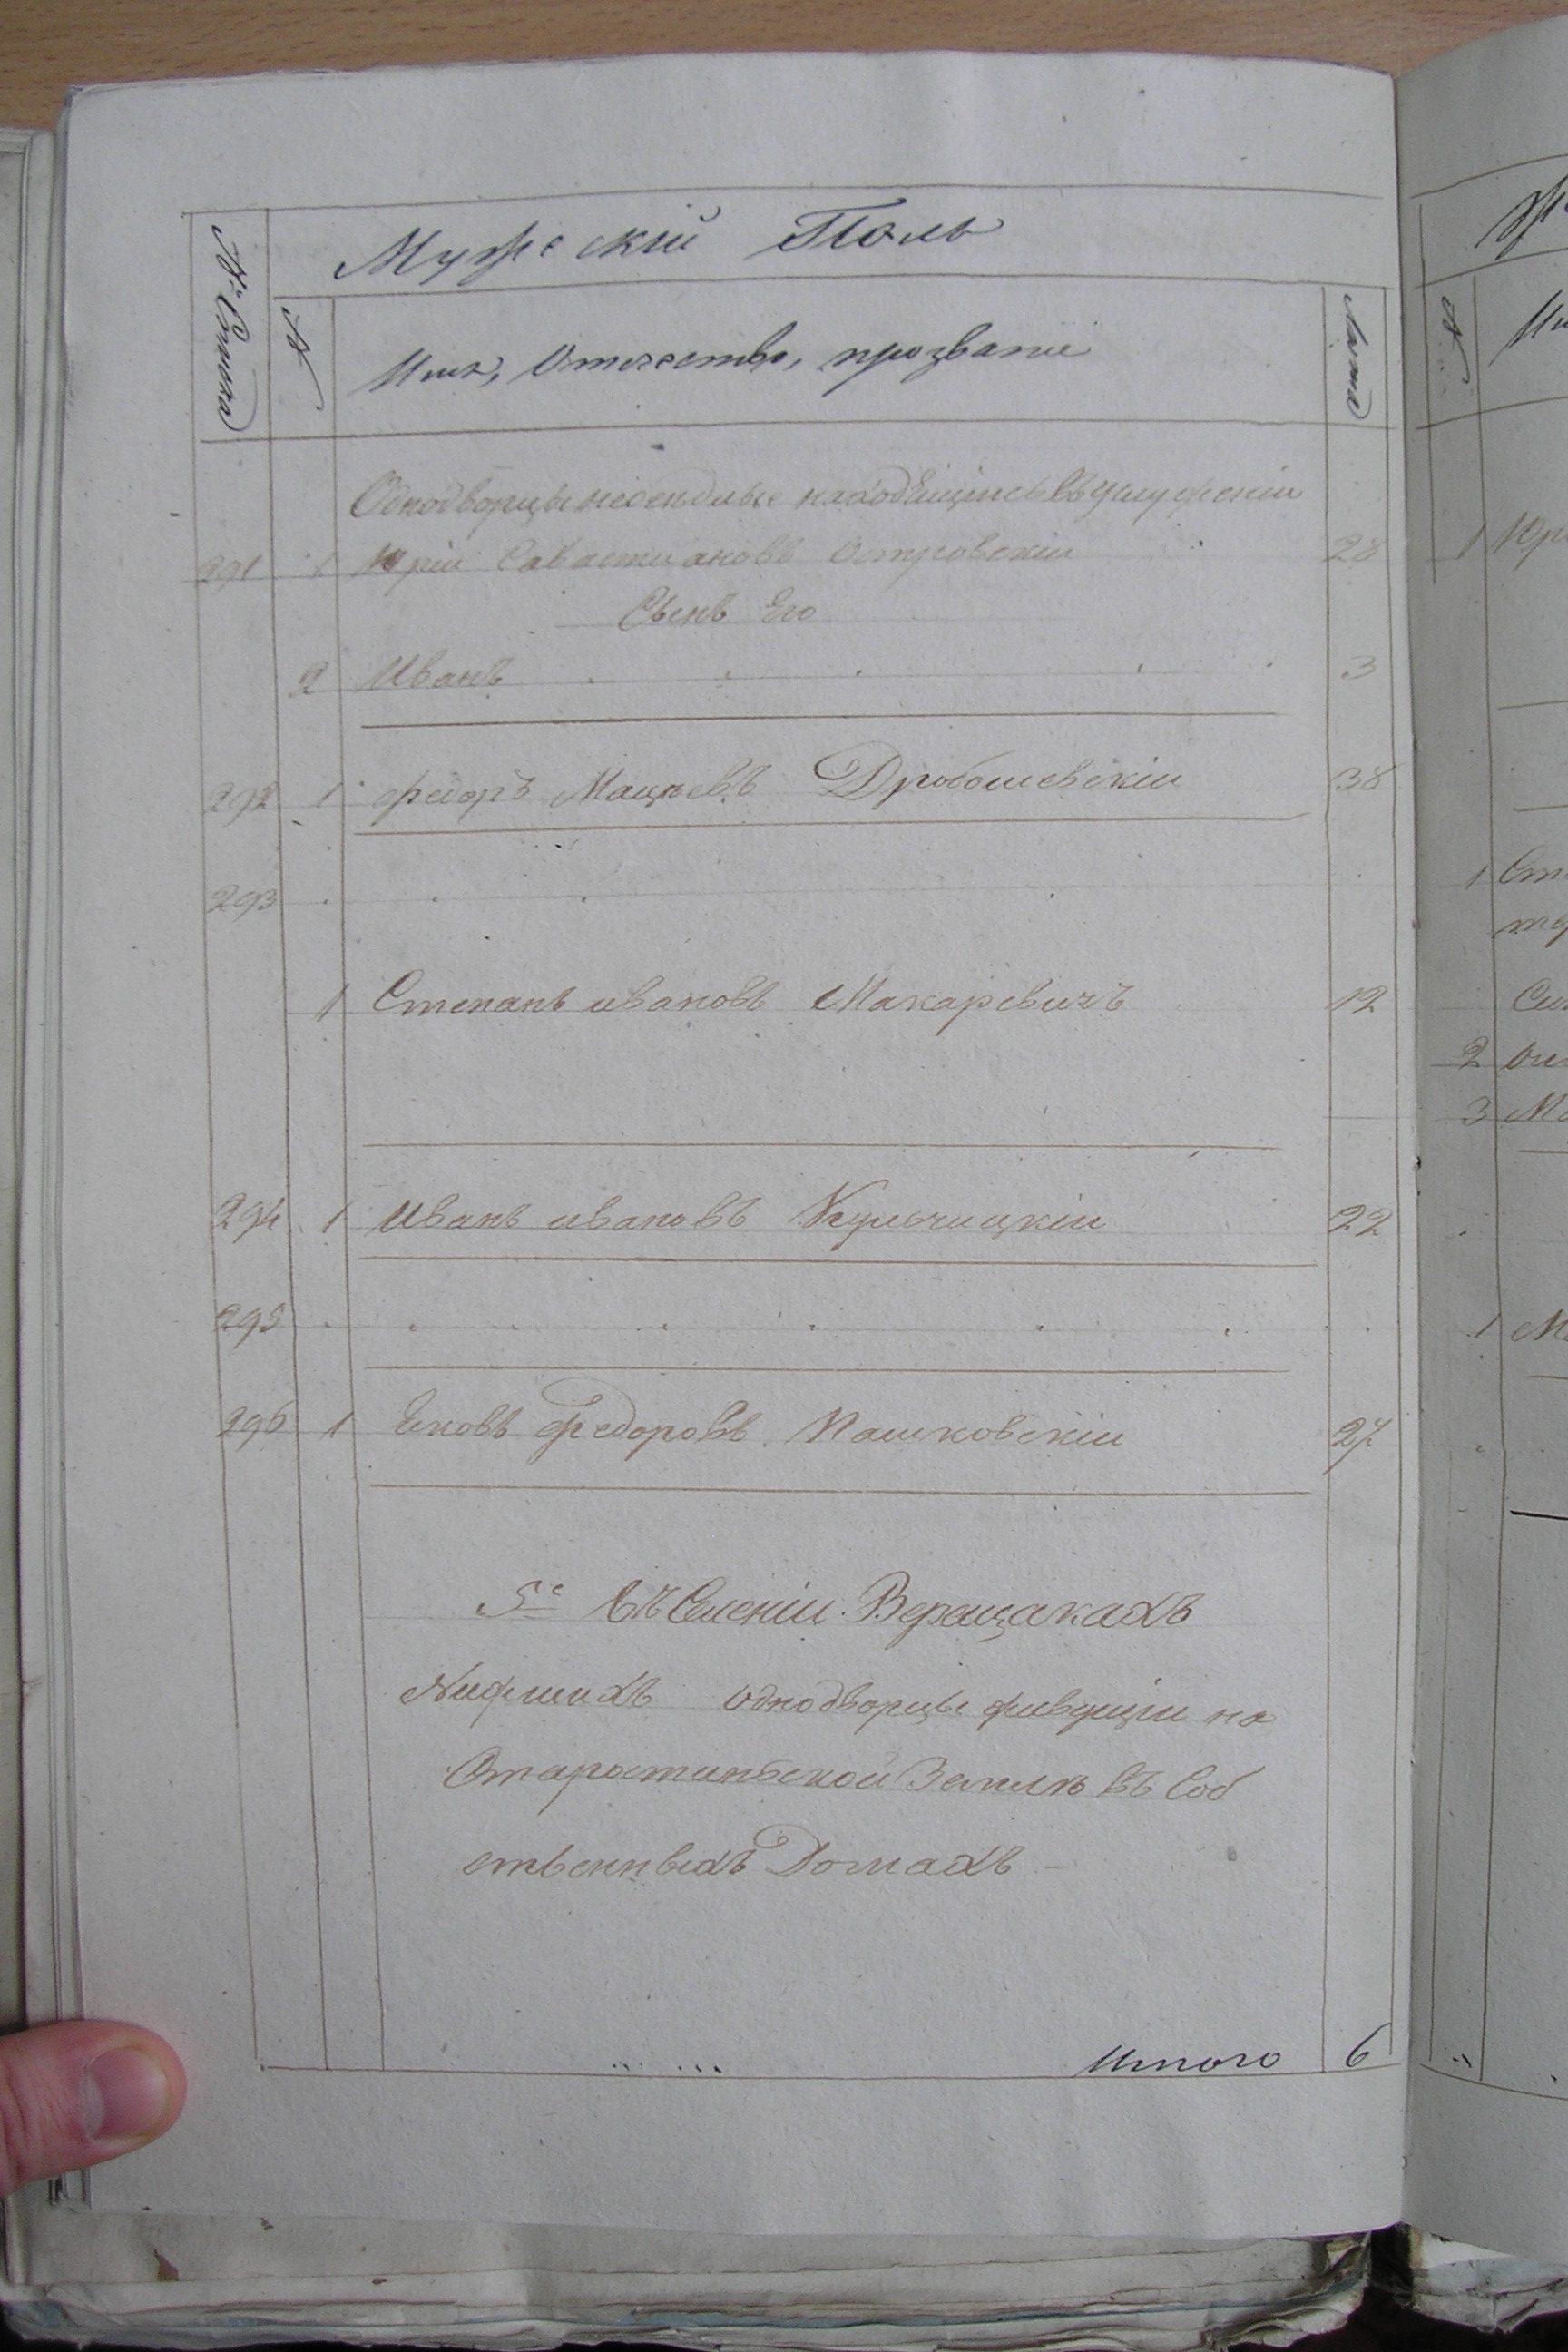 Мужескій Полъ
№ Списка
№
Имя, Отечество, прозваніе
Лѣта
Однодворцы неоседлые находящіися въ услуженіи
291 1 Юріи Савастиановъ Островскіи 28
Сынъ Его
2 Иванъ 3
292 1 Федоръ Мацѣевъ Дробошевскіи 38
293
1 Степанъ ивановъ Макаревичъ 12
294 1 Иванъ ивановъ Кульчицкіи 22
295
296 1 Еновъ Федоровъ Пашковскіи 27
5е въ Селеніи Верещакахъ
Нижшихъ однодворцы живущіи на
Старостинской Землѣ въ Соб
ственныхъ Домахъ
Итого 6
1 Юр
1 Сте
2
3 Ма
1 М